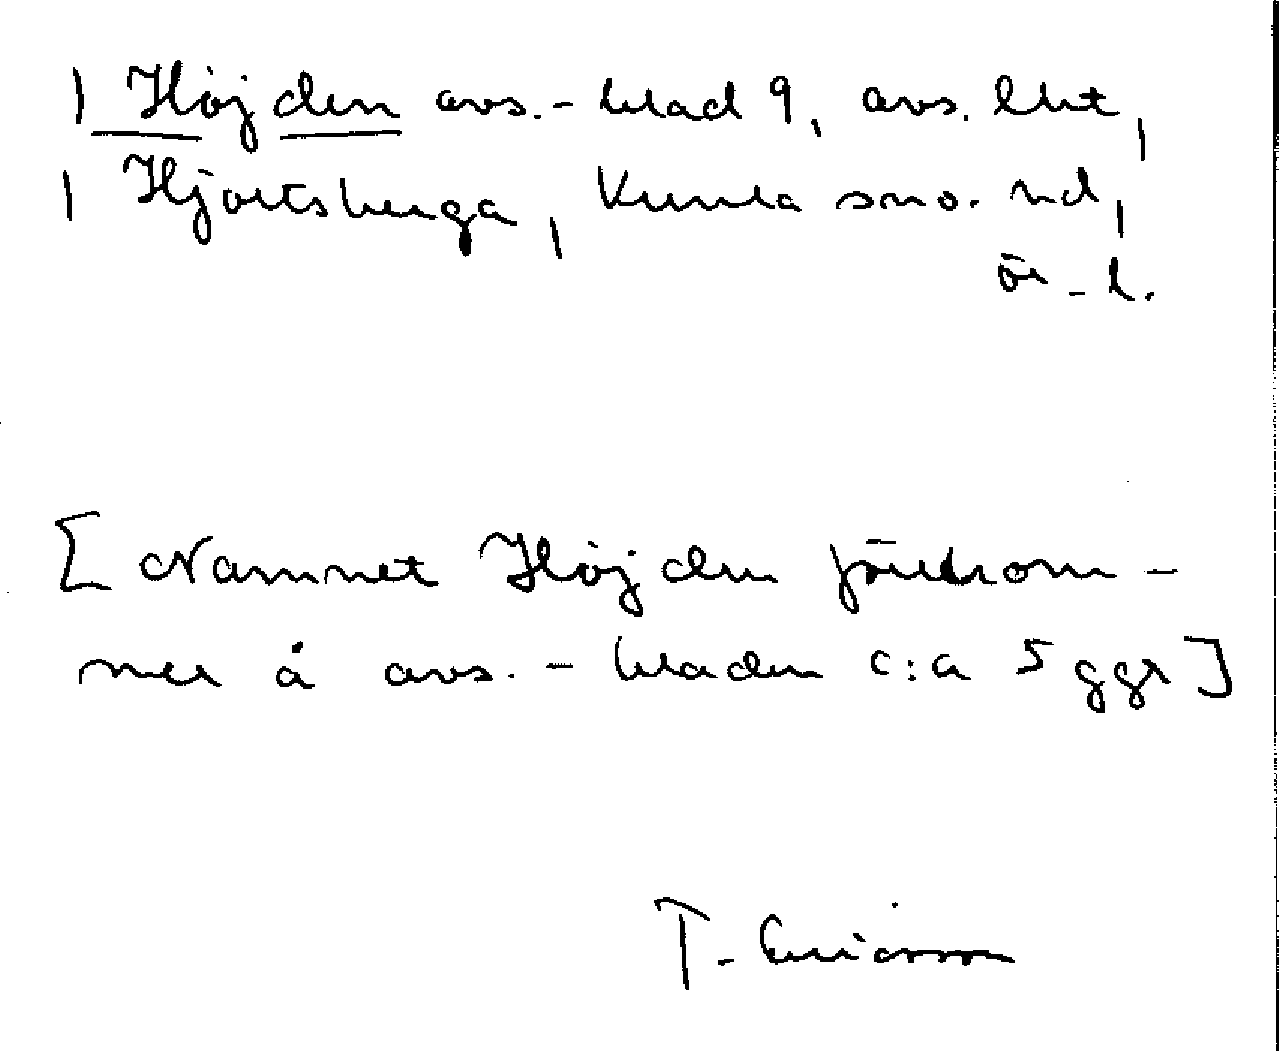 | Höjden avs.-blad 9, avs. lht,
| Hjortsberga, Kumla sno. hd,
ör-l.
[Namnet Höjden förekom-
mer å avs.-bladen c:a 5 ggr]
T. Ericsson